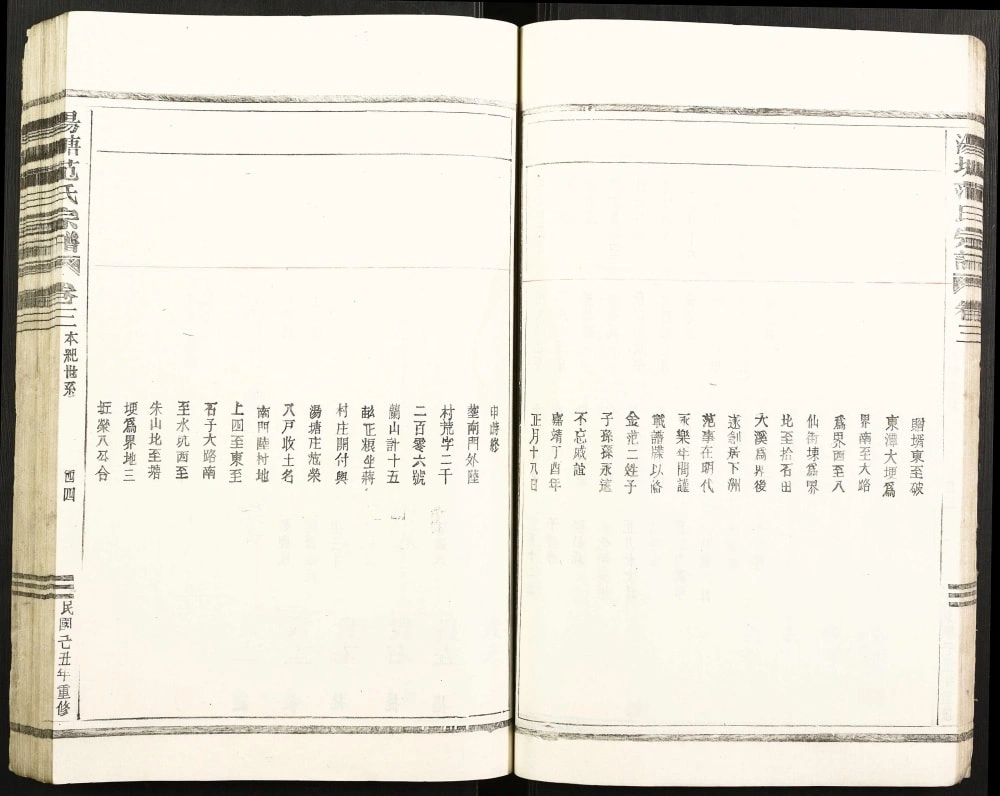 湯塘范氏宗譜 卷三
贈壻東至破
東潭大埂爲
界南至大路
爲界西至八
仙街埭爲界
北至拾石出
大溪爲界後
遂創居下洲
范事在明代
永樂年間謹
職譜牒以脩
金范二姓子
子孫孫永遠
不忘戚誼
嘉靖丁酉年
正月十九日
申時修
蘭南門外陸
村荒字二千
二百零六號
蘭山計十五
畝正糧坐蔣
村庄開付與
湯塘庄范榮
八戶收土名
南門陸村地
上四至東至
石子大路南
至水坑西至
朱山北至塔
埂爲界地三
坵榮八衆合
湯塘范氏宗譜 卷三
本紀世系
四四
民國己丑年重修